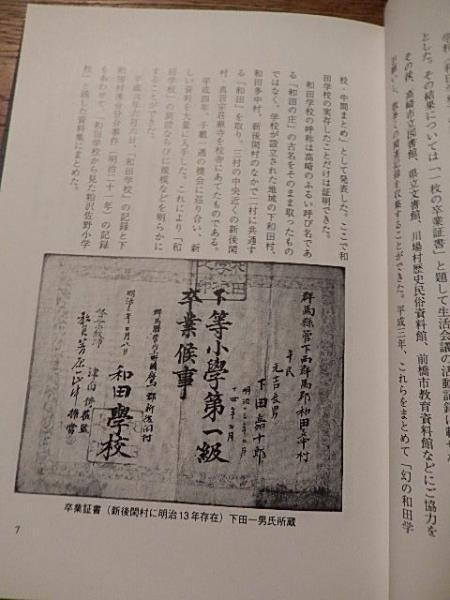 とした。その結果については「一枚の卒業証書」と題して生活会議の活動記録に載せた
その後、高崎市立図書館、県立文書館、川場村歴史民俗資料館、前橋市教育資料館などにご協力を
することができた。平成三年、これらをまとめて「幻の和田学
校・中間まとめ」として発表した。ここで和
田学校の実存したことだけは証明できた。
和田学校の呼称は高崎のふるい呼び名であ
る「和田の庄」の古名をそのまま取ったもの
ではなく、学校が設立された地域の下和田村、
和田多中村、新後閑村のなかで二村に共通す
る「和田」を取り、三村の中央近くの新後閑
村・真言宗荘厳寺を校舎にあてたものである。
平成四年、千載一遇の機会に巡り合い、新
しい資料を大量に入手した。これにより「和
田学校」の規模などを明らかに
することができた。
平成六年六月六日、「和田学校」の記録と下
和田村
もあわせて、「和田学校から見た粕沢佐野小学
校」と題して資料集にまとめた。
群馬縣管下西群馬郡和田多中村
平民
元吉長男
下田嘉十郎
下等小學第一級
卒業候事
和田學校
卒業証書（新後閑村に明治13年存在）下田一男氏所蔵
7